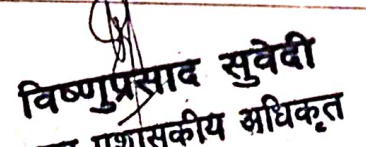 विष्णुप्रसाद सुवेदी
प्रशासकीय अधिकृत